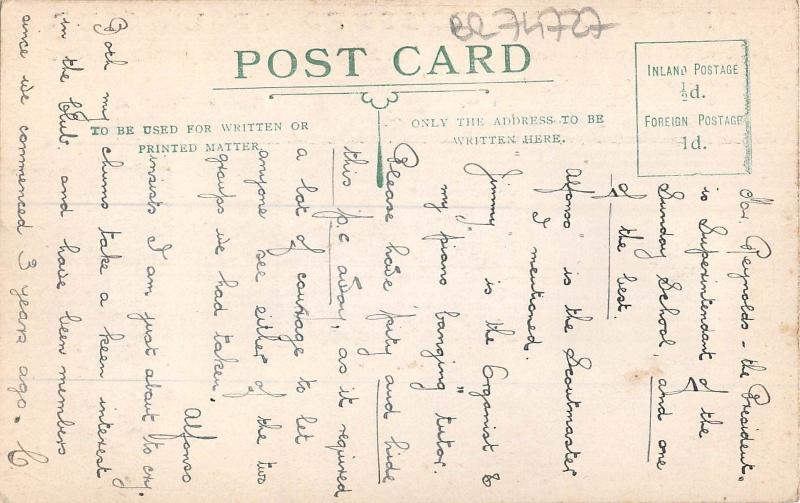 BR 74727
POST CARD
INLAND POSTAGE
½d.
FOREIGN POSTAGE
1d.
TO BE USED FOR WRITTEN OR
PRINTED MATTER.
ONLY THE ADDRESS TO BE
WRITTEN HERE.
Mr. Reynolds - the President,
is Superintendant of the
Sunday School, and one
of the best.
"Alfonso" is the Scoutmaster
I mentioned.
"Jimmy" is the Organist &
my "piano banging" tutor.
Please have pity and hide
this p.c away, as it required
a lot of courage to let
anyone see either of the two
groups we had taken.
Alfonso
insists I am just about to cry.
Both my chums take a keen interest
in the Club. and have been members
since we commenced 3 years ago.